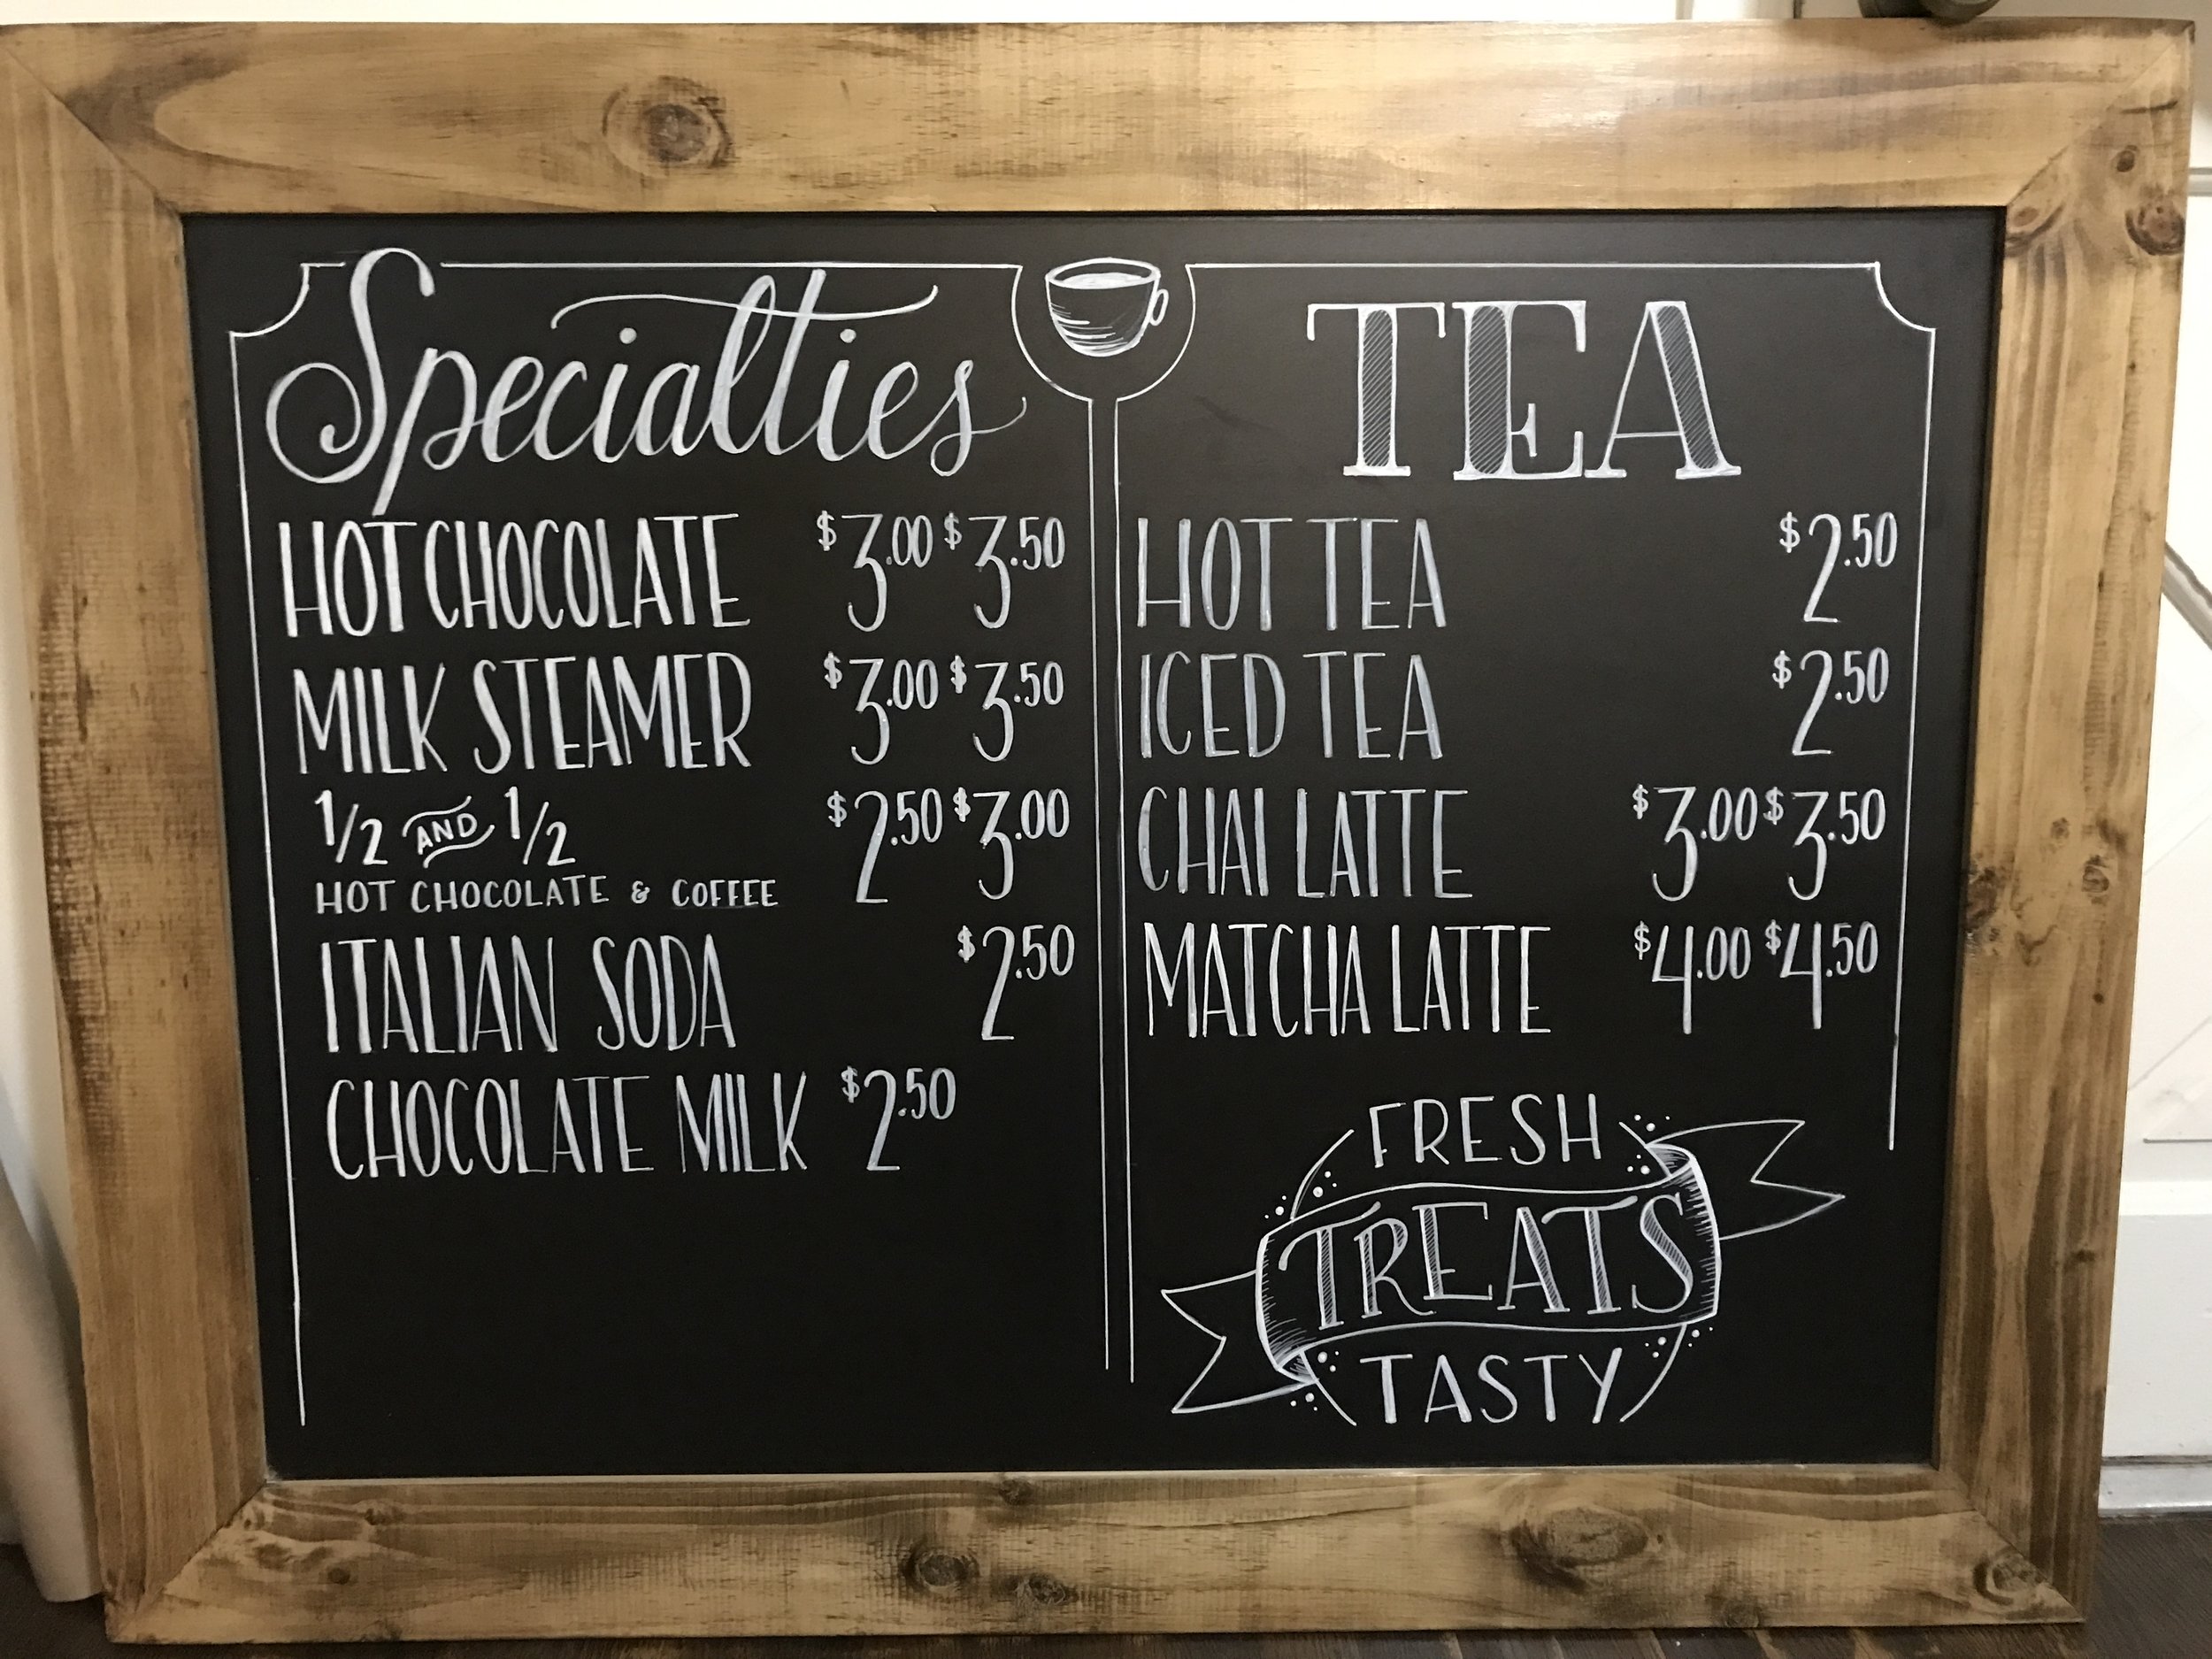 Specialties
HOT CHOCOLATE $3.00 $3.50
MILK STEAMER $3.00 $3.50
1/2 AND 1/2 $2.50 $3.00
HOT CHOCOLATE & COFFEE
ITALIAN SODA $2.50
CHOCOLATE MILK $2.50
TEA
HOT TEA $2.50
ICED TEA $2.50
CHAI LATTE $3.00 $3.50
MATCHA LATTE $4.00 $4.50
FRESH
TREATS
TASTY